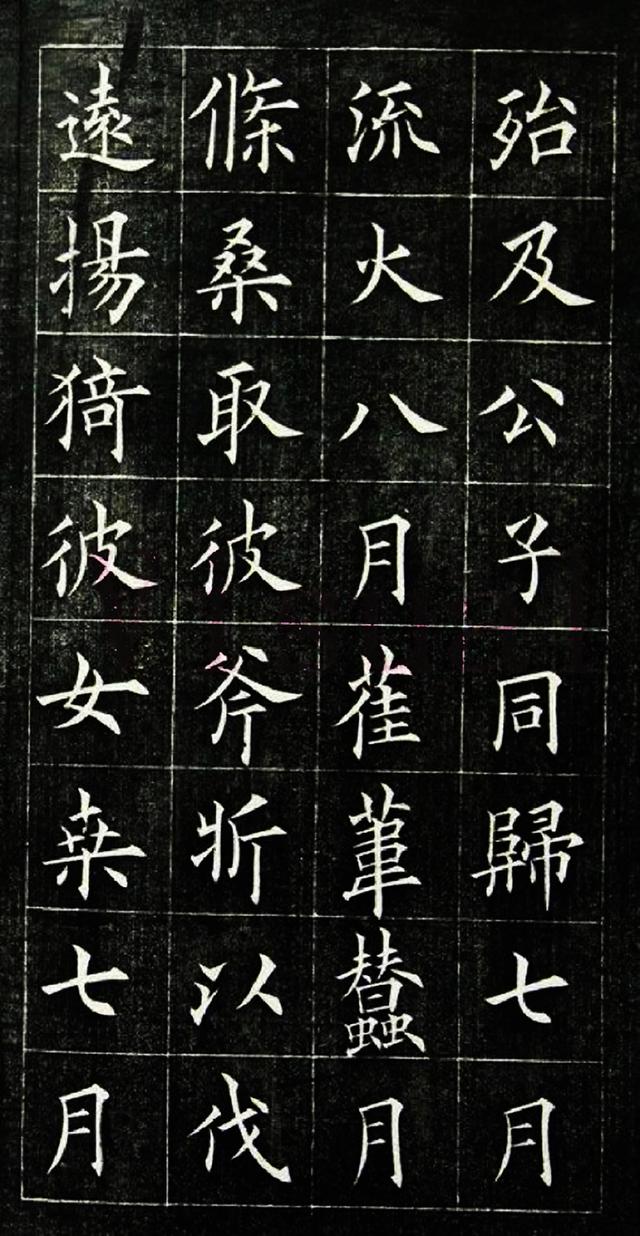 殆及公子同歸七月
流火八月萑葦蠶月
條桑取彼斧斨以伐
遠揚猗彼女桒七月